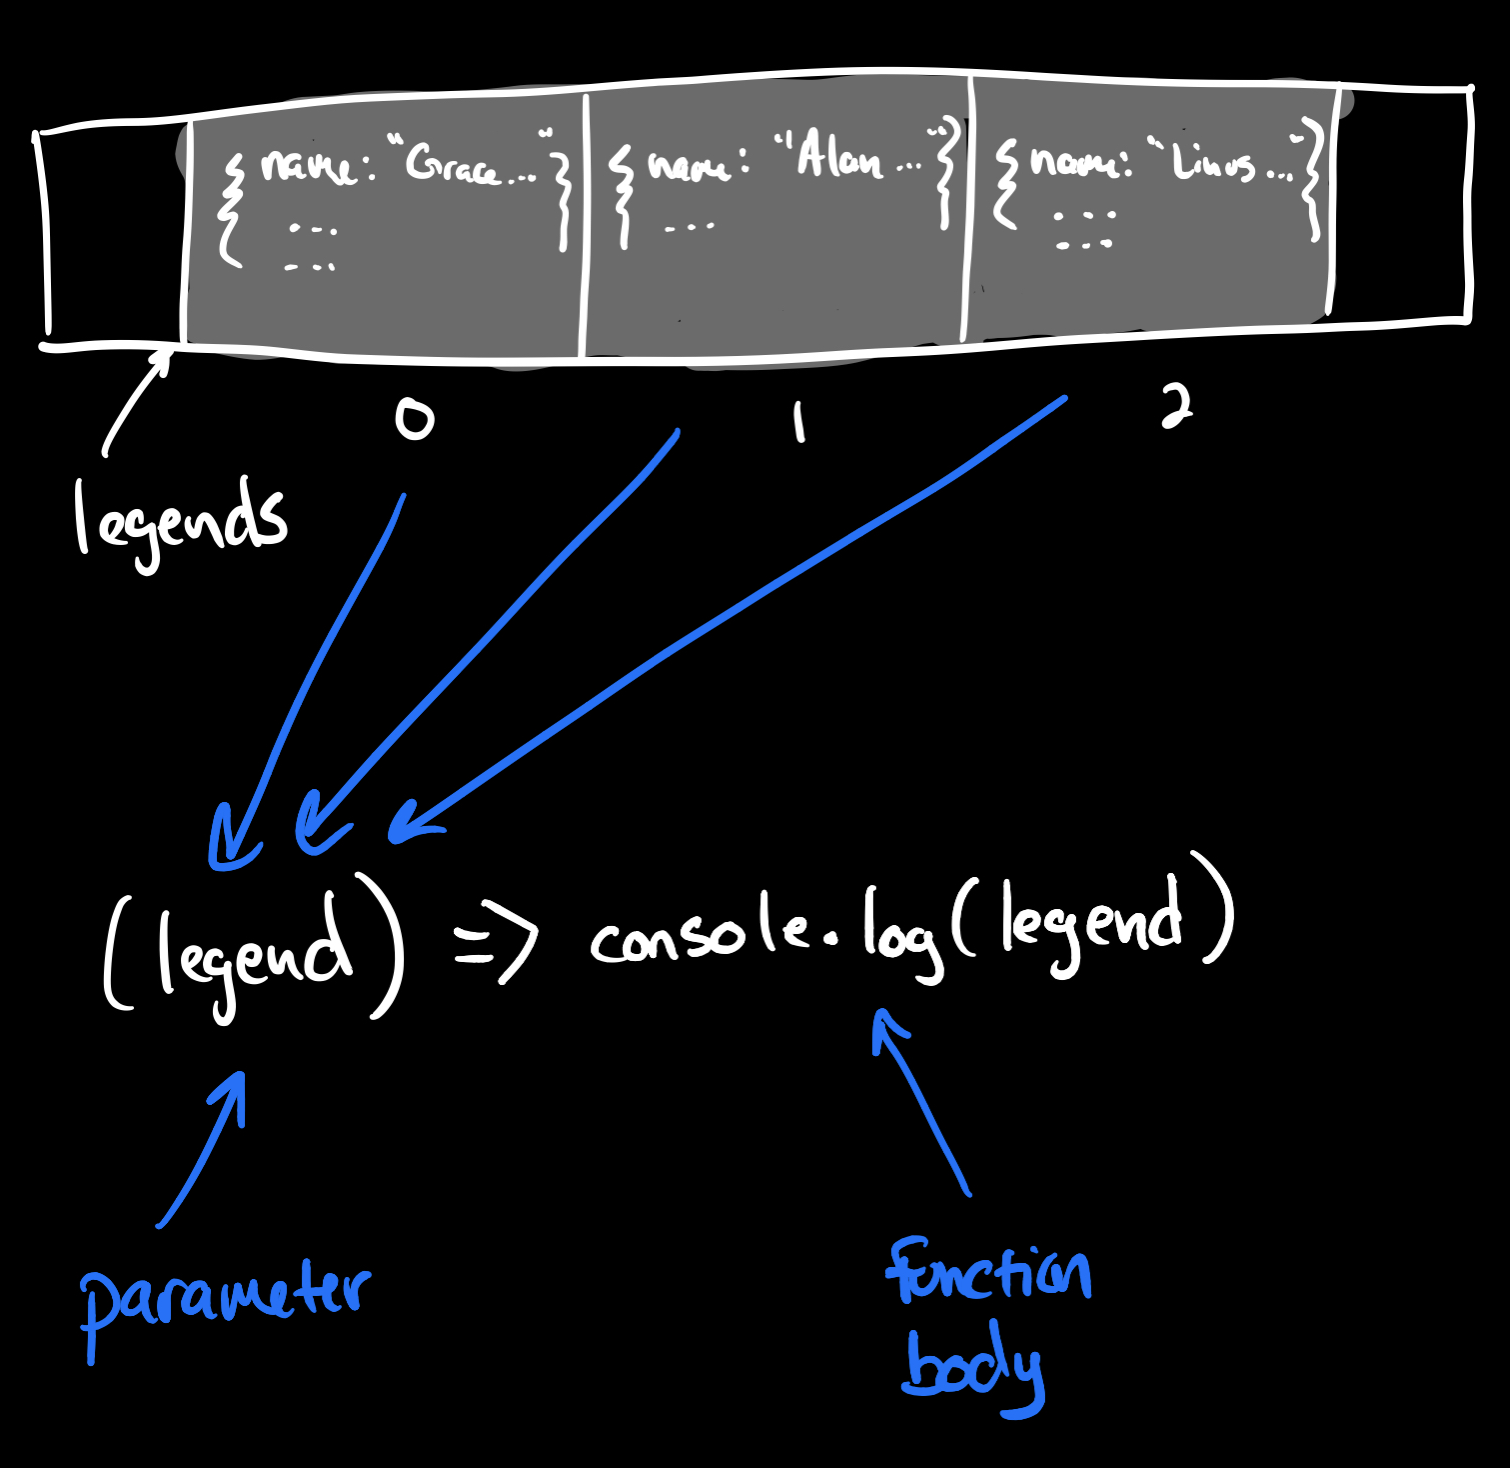 { name: "Grace..." }
...
...
{ name: "Alan ..." }
...
{ name: "Linus..." }
...
...
0
1
2
legends
(legend) => console.log(legend)
parameter
function
body